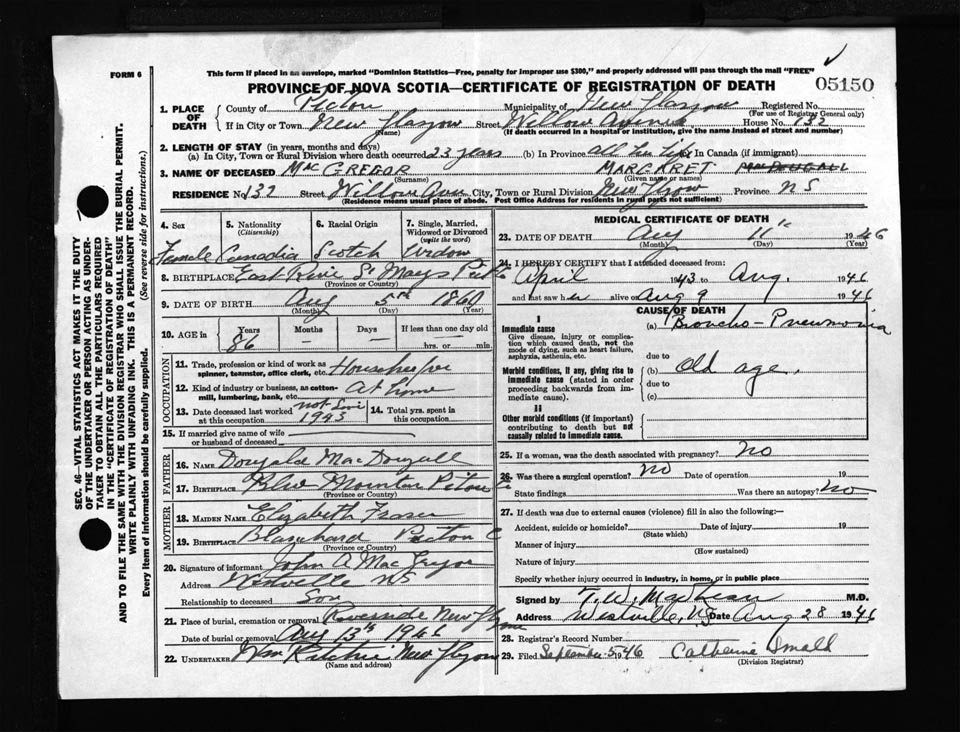 FORM 6
This form if placed in an envelope, marked "Dominion Statistics—Free, penalty for improper use $300," and properly addressed will pass through the mail "FREE"
PROVINCE OF NOVA SCOTIA—CERTIFICATE OF REGISTRATION OF DEATH
05150
1. PLACE OF DEATH
County of Pictou Municipality of New Glasgow Registered No.
(For use of Registrar General only)
If in City or Town New Glasgow Street Willow Avenue House No. 132
(Name) (If death occurred in a hospital or institution, give the name instead of street and number)
2. LENGTH OF STAY (in years, months and days)
(a) In City, Town or Rural Division where death occurred 23 years (b) In Province all her life In Canada (if immigrant)
3. NAME OF DECEASED MACGREGOR MARGARET MACDOUGALL
(Surname) (Given name or names)
RESIDENCE No. 132 Street Willow Ave City, Town or Rural Division New Glasgow Province N S
(Residence means usual place of abode. Post Office Address for residents in rural parts not sufficient)
4. Sex Female
5. Nationality (Citizenship) Canadia
6. Racial Origin Scotch
7. Single, Married, Widowed or Divorced (write the word) Widow
8. BIRTHPLACE East River St Marys
(Province or Country)
9. DATE OF BIRTH Aug 5th 1860
(Month) (Day) (Year)
10. AGE in Years 86 Months — Days — If less than one day old
hrs. or min.
OCCUPATION
11. Trade, profession or kind of work as spinner, teamster, office clerk, etc. Housekeeper
12. Kind of industry or business, as cotton-mill, lumbering, bank, etc. At home
13. Date deceased last worked at this occupation 1943
14. Total yrs. spent in this occupation
15. If married give name of wife or husband of deceased
FATHER
16. NAME Dougald MacDougall
17. BIRTHPLACE Blue Mountain Pictou C
(Province or Country)
MOTHER
18. MAIDEN NAME Elizabeth Fraser
19. BIRTHPLACE Blanchard Pictou C
(Province or Country)
20. Signature of informant John A MacGregor
Address Westville N S
Relationship to deceased Son
21. Place of burial, cremation or removal Riverside New Glasgow
Date of burial or removal Aug 13th 1946
22. UNDERTAKER Wm Ritchie New Glasgow
(Name and address)
MEDICAL CERTIFICATE OF DEATH
23. DATE OF DEATH Aug 11th 1946
(Month) (Day) (Year)
24. I HEREBY CERTIFY that I attended deceased from:
April 1943 to Aug. 1946
and last saw her alive on Aug 9 1946
CAUSE OF DEATH
I
Immediate cause (a) Broncho-Pneumonia
Give disease, injury or complication which caused death, not the mode of dying, such as heart failure, asphyxia, asthenia, etc.
due to
Morbid conditions, if any, giving rise to immediate cause (stated in order proceeding backwards from immediate cause).
(b) Old age.
due to
(c)
II
Other morbid conditions (if important) contributing to death but not causally related to immediate cause.
25. If a woman, was the death associated with pregnancy? No
26. Was there a surgical operation? No Date of operation 19
State findings Was there an autopsy? No
27. If death was due to external causes (violence) fill in also the following:—
Accident, suicide or homicide? Date of injury 19
(State which)
Manner of injury
(How sustained)
Nature of injury
Specify whether injury occurred in industry, in home, or in public place
Signed by M.D.
Address Westville, N.S. Date Aug 28 1946
28. Registrar's Record Number
29. Filed September 5 1946 Catherine
(Division Registrar)
SEC. 46—VITAL STATISTICS ACT MAKES IT THE DUTY
OF THE UNDERTAKER OR PERSON ACTING AS UNDER-
TAKER TO OBTAIN ALL THE PARTICULARS REQUIRED
IN THE "CERTIFICATE OF REGISTRATION OF DEATH"
AND TO FILE THE SAME WITH THE DIVISION REGISTRAR WHO SHALL ISSUE THE BURIAL PERMIT.
WRITE PLAINLY WITH UNFADING INK. THIS IS A PERMANENT RECORD.
Every item of information should be carefully supplied. (See reverse side for instructions.)